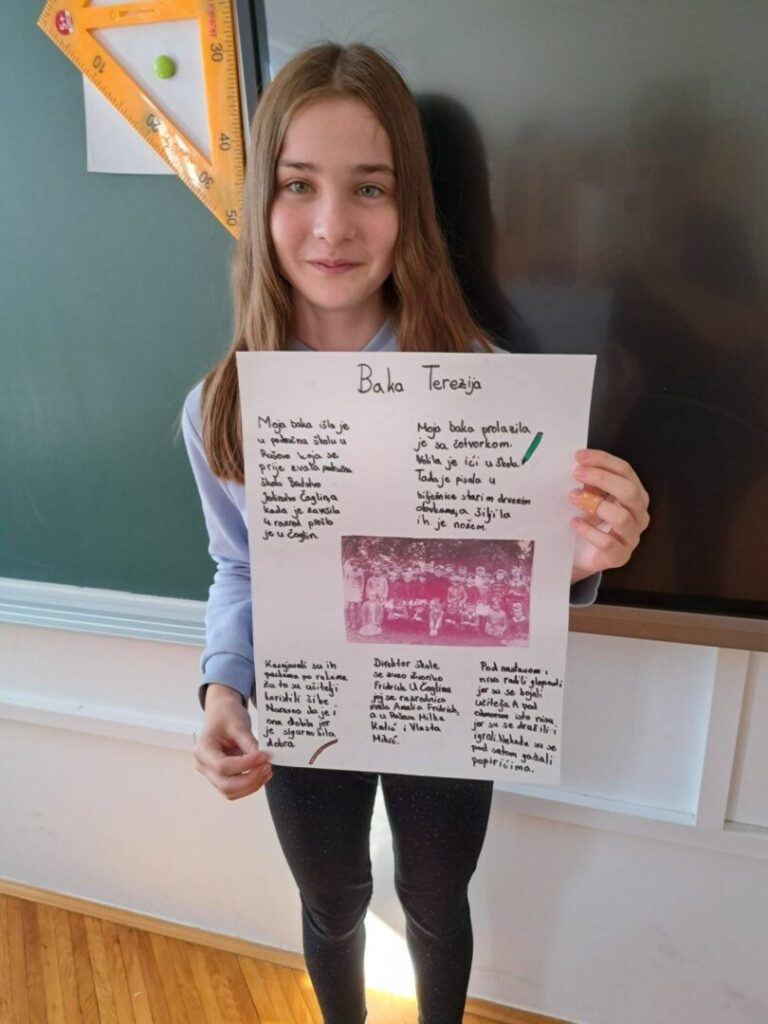 Baka Terezija
Moja baka išla je
u područnu školu u
Ruševo koja se
prije zvala područna
škola Bratstvo
Jedinstvo Čaglin, a
kada je završila
4. razred prošla
je u Čaglin.
Moja baka prolazila
je sa četvorkom.
Volila je ići u školu.
Tada je pisala u
bilježnice starim drvenim
olovkama, a šiljila
ih je nožem.
Kažnjavali su ih
packama po rukama
za to su učitelji
koristili šibe
Naravno da je i
ona dobila jer
je sigurno bila
dobra.
Direktor škole
se zvao Zvonko
Fridrich. U Čaglinu
joj se razrednica
zvala Amalia Fridrich,
a u Ruševu Milka
Katić i Vlasta
Mikić.
Pod nastavom
nisu radili gluposti
jer su se bojali
učitelja. A pod
odmorom isto nisu
jer su se družili i
igrali. Nekada su se
pod satom gađali
papirićima.
10
20
30
30
40
50
5+